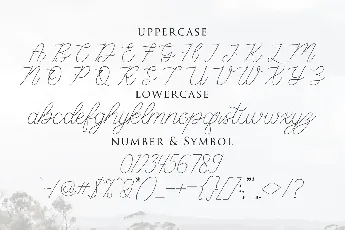 UPPERCASE
A B C D E F G H I J K L M
N O P Q R S T U V W X Y Z
LOWERCASE
abcdefghijklmnopqrstuvwxyz
NUMBER & SYMBOL
0123456789